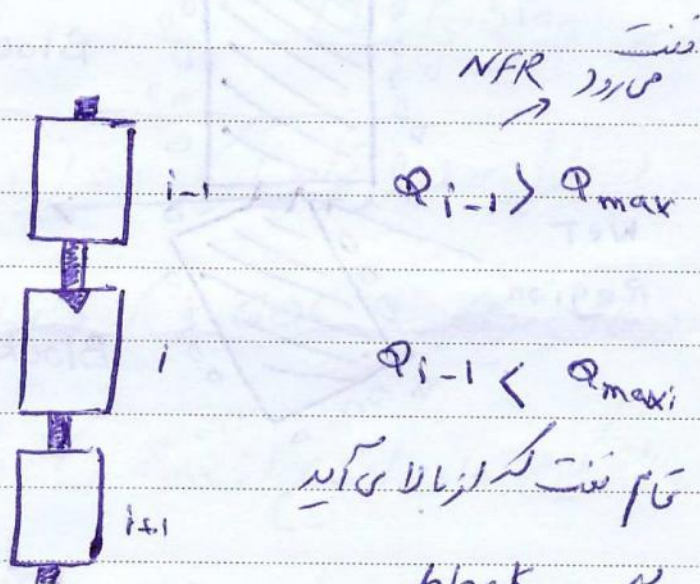 نفت
می‌رود NFR
i-1
Q i-1 > Q max
i
Q i-1 < Q max i
تمام نفت که از بالا می‌آید
i+1
block